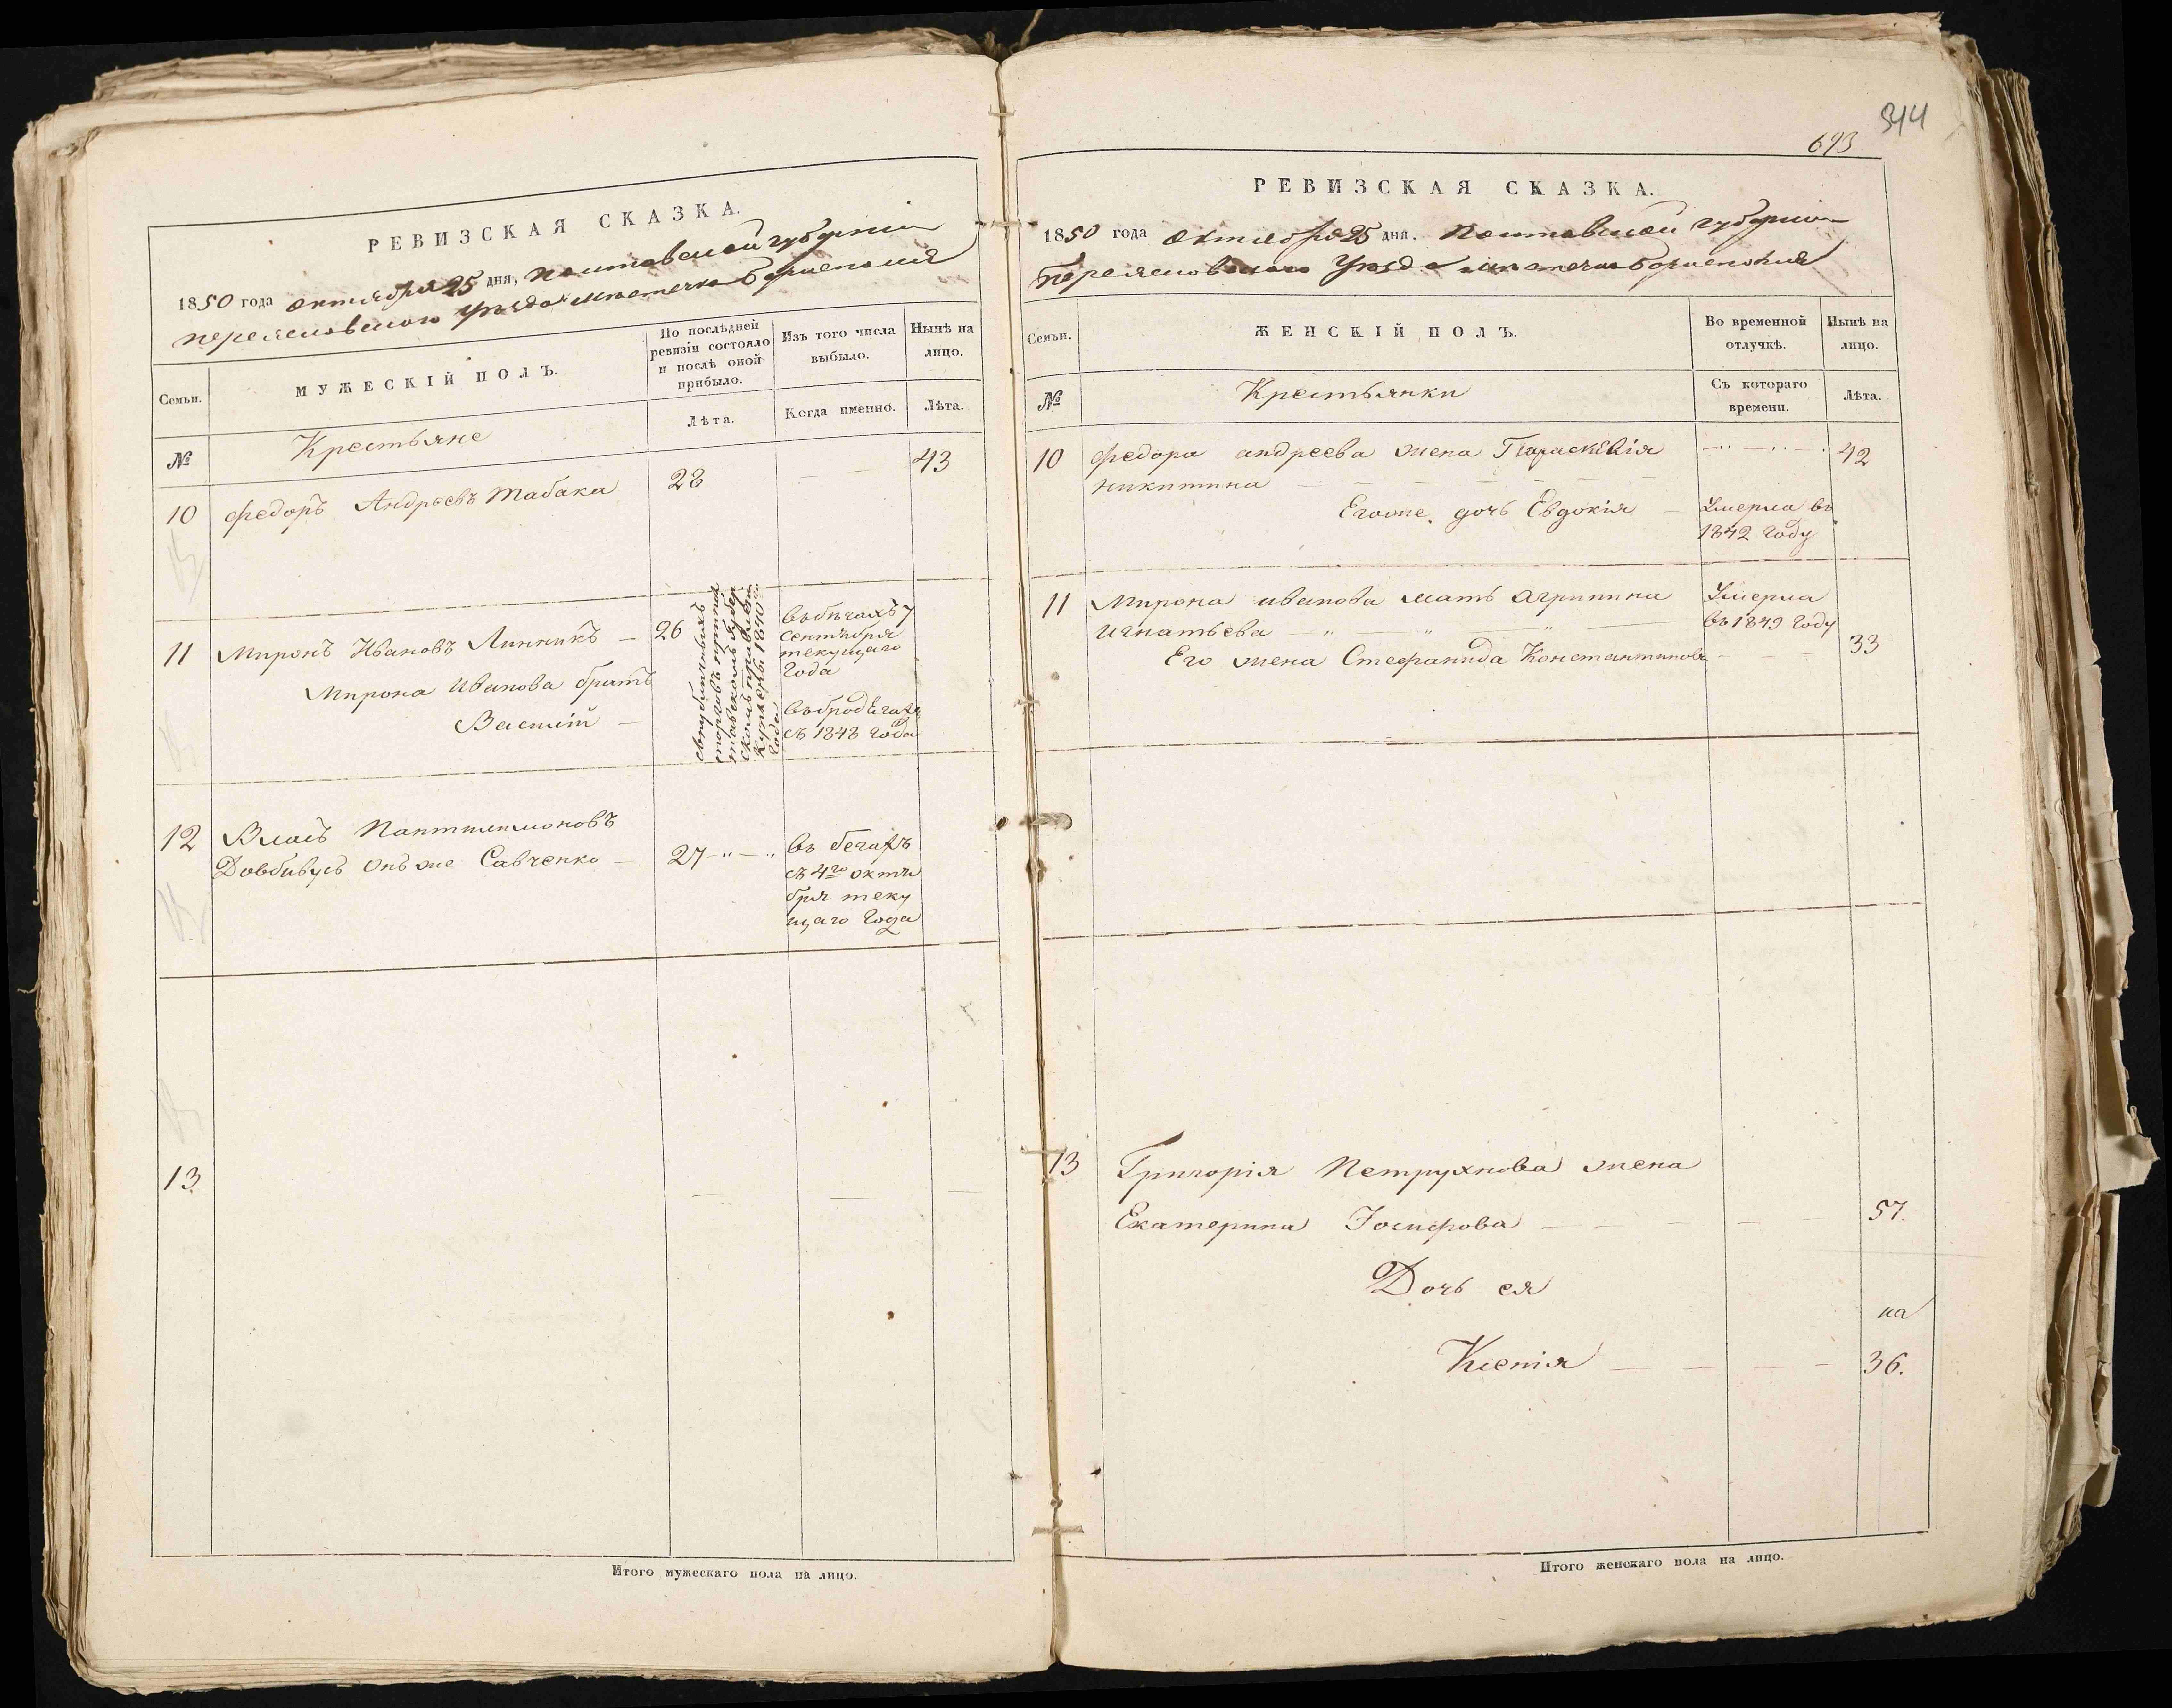 РЕВИЗСКАЯ СКАЗКА.
1850 года октября 25 дня, Полтавской губерніи
Переяславскаго уѣзда мѣстечка Борисполя
Семьи.
МУЖЕСКІЙ ПОЛЪ.
По послѣдней ревизіи состояло и послѣ оной прибыло.
Изъ того числа выбыло.
Нынѣ на лицо.
№
Крестьяне
Лѣта.
Когда именно.
Лѣта.
10 Федоръ Андреевъ Табака 28 43
11 Миронъ Ивановъ Линникъ 26
въ бѣгахъ 7
сентября
текущаго
года
Мирона Иванова братъ
Василій
въ бродѣгахъ
съ 1848 года
съ публичныхъ
торговъ
12 Власъ Пантилимоновъ
Довбивусъ онъ же Савченко 27
въ бегахъ
съ 4го октя
бря теку
щаго года
13
Итого мужескаго пола на лицо.
944
693
РЕВИЗСКАЯ СКАЗКА.
1850 года октября 25 дня. Полтавской губерніи
Переяславскаго уѣзда мѣстечка Борисполя
Семьи.
ЖЕНСКІЙ ПОЛЪ.
Во временной отлучкѣ.
Нынѣ на лицо.
№
Крестьянки
Съ котораго времени.
Лѣта.
10 Федора андреева жена Параскевія 42
никитина
Егоже дочь Евдокія Умерла въ
1842 году
11 Мирона иванова мать агрипина Умерла
игнатьева въ 1849 году
Его жена Стефанида Константинова 33
13 Григорія Петрухнова жена
Екатерина Іосифова 57.
Дочь ея
на
Ксенія 36.
Итого женскаго пола на лицо.